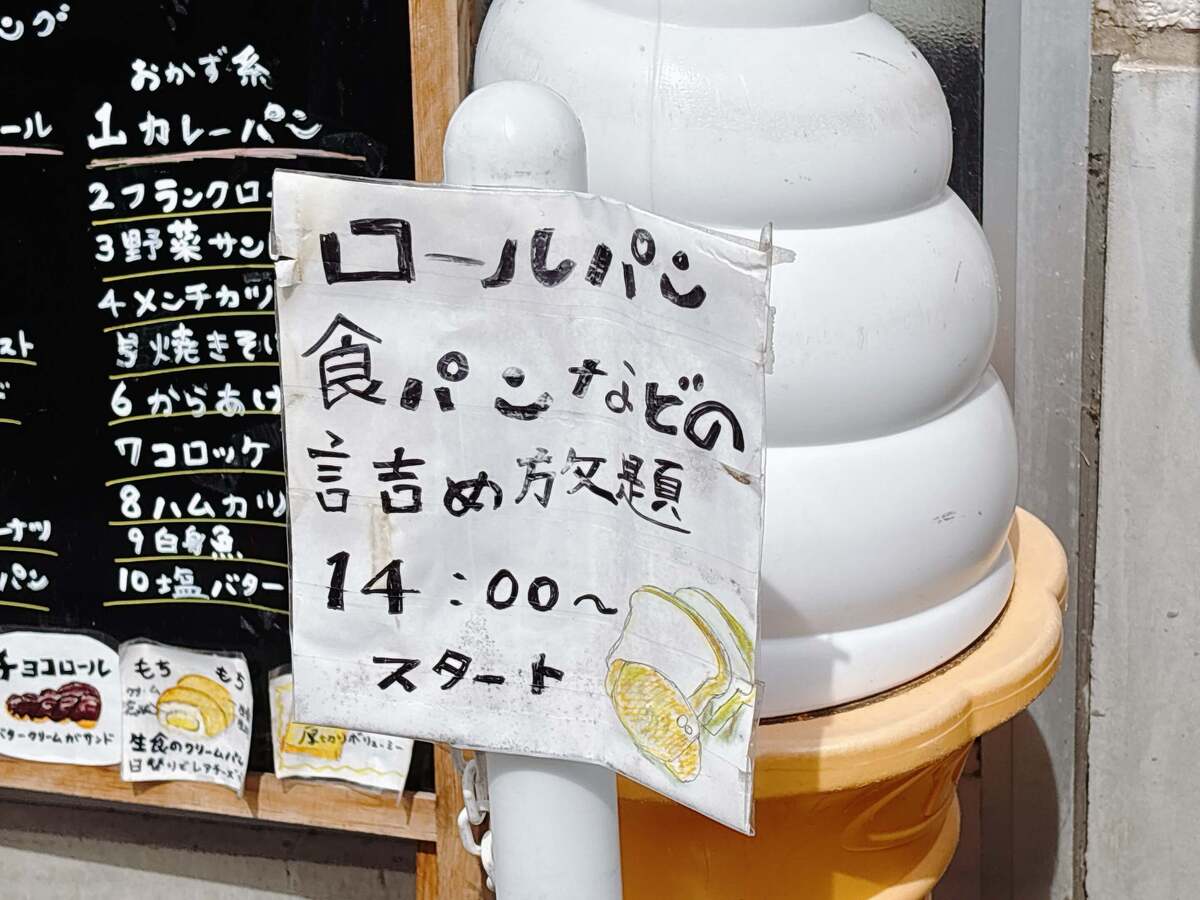 ング
おかず系
ール
1 カレーパン
2 フランクロ
3 野菜サン
4 メンチカツ
スト
5 焼きそば
6 からあげ
7 コロッケ
8 ハムカツ
ーナツ
9 白身魚
パン
10 塩バター
ロールパン
食パンなどの
詰め放題
14:00～
スタート
チョコロール
バタークリームがサンド
もち もち
生食のクリームパン
日替りどレアチーズ
厚切りボリューミー